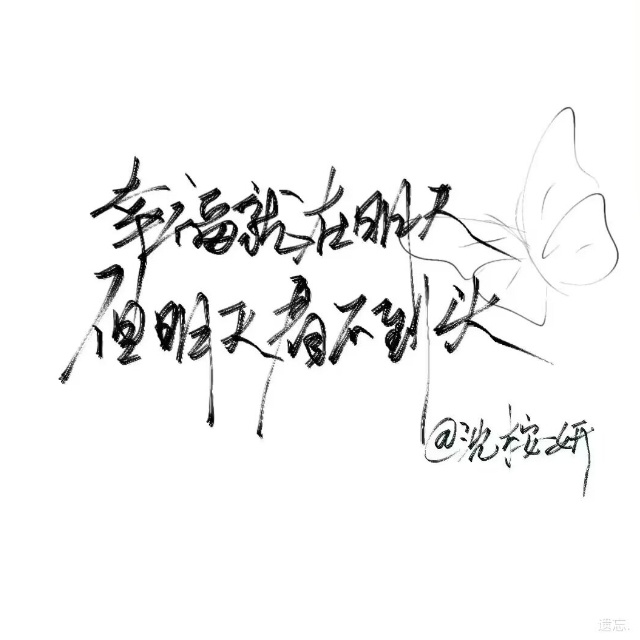 幸福就在明天
但明天看不到头
@沈桉妍
遗忘.